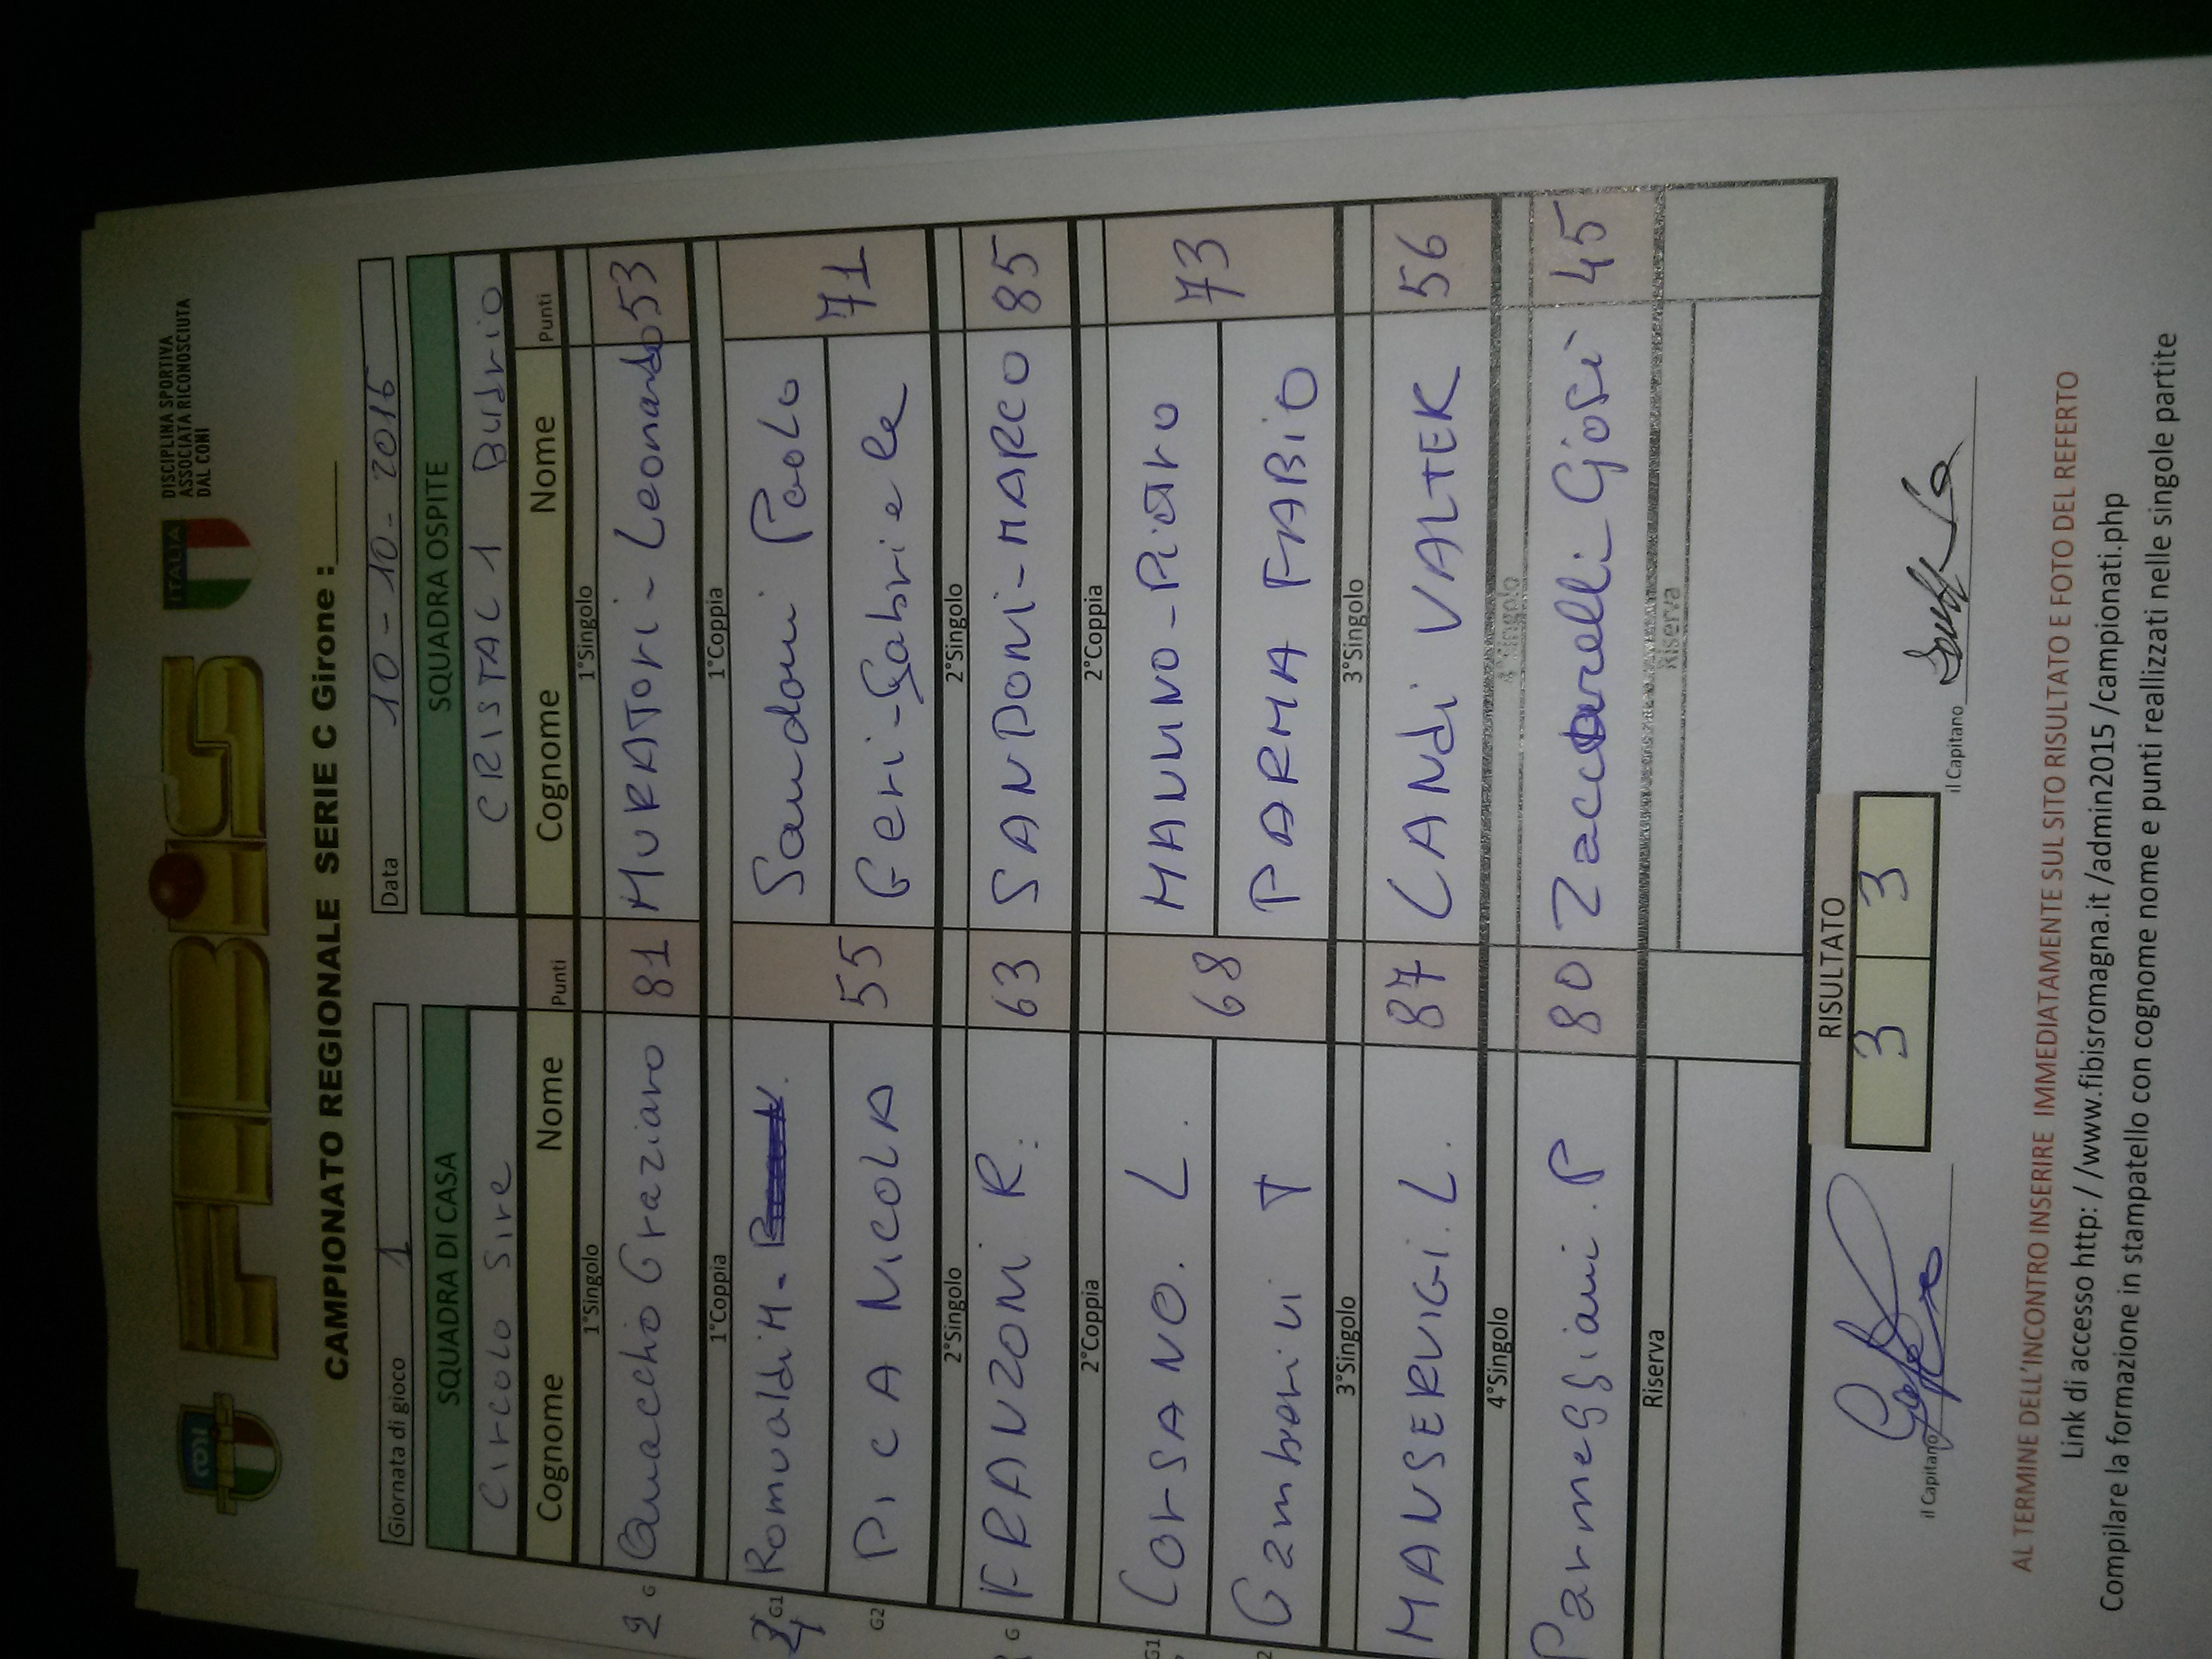 CONI
FIBIS
FIBiS
ITALIA
DISCIPLINA SPORTIVA
ASSOCIATA RICONOSCIUTA
DAL CONI
CAMPIONATO REGIONALE SERIE C Girone :
Giornata di gioco 1 Data 10-10-2016
SQUADRA DI CASA SQUADRA OSPITE
Circolo Sire CRISTAL 1 Budrio
Cognome Nome Punti Cognome Nome Punti
1°Singolo 1°Singolo
2 G Quacchio Graziano 81 MURATori - Leonardo 53
1°Coppia 1°Coppia
G1 Romualdi M. Sandoni Paolo
G2 PicA NicOLA 55 Geri-Gabriele 71
2°Singolo 2°Singolo
G FRANZONi R. 63 SANDONi-MARCO 85
2°Coppia 2°Coppia
G1 CorSANO. L. MANUNO-Pietro
2 Gamberini T 68 PARMA FABiO 73
3°Singolo 3°Singolo
MANSERViGi. L. 87 LANdi VALTER 56
4°Singolo 4°Singolo
Parmeggiani. P 80 Zaccarelli Giosi 45
Riserva Riserva
RISULTATO
3 3
il Capitano il Capitano
AL TERMINE DELL'INCONTRO INSERIRE IMMEDIATAMENTE SUL SITO RISULTATO E FOTO DEL REFERTO
Link di accesso http: / /www.fibisromagna.it /admin2015 /campionati.php
Compilare la formazione in stampatello con cognome nome e punti reallizzati nelle singole partite